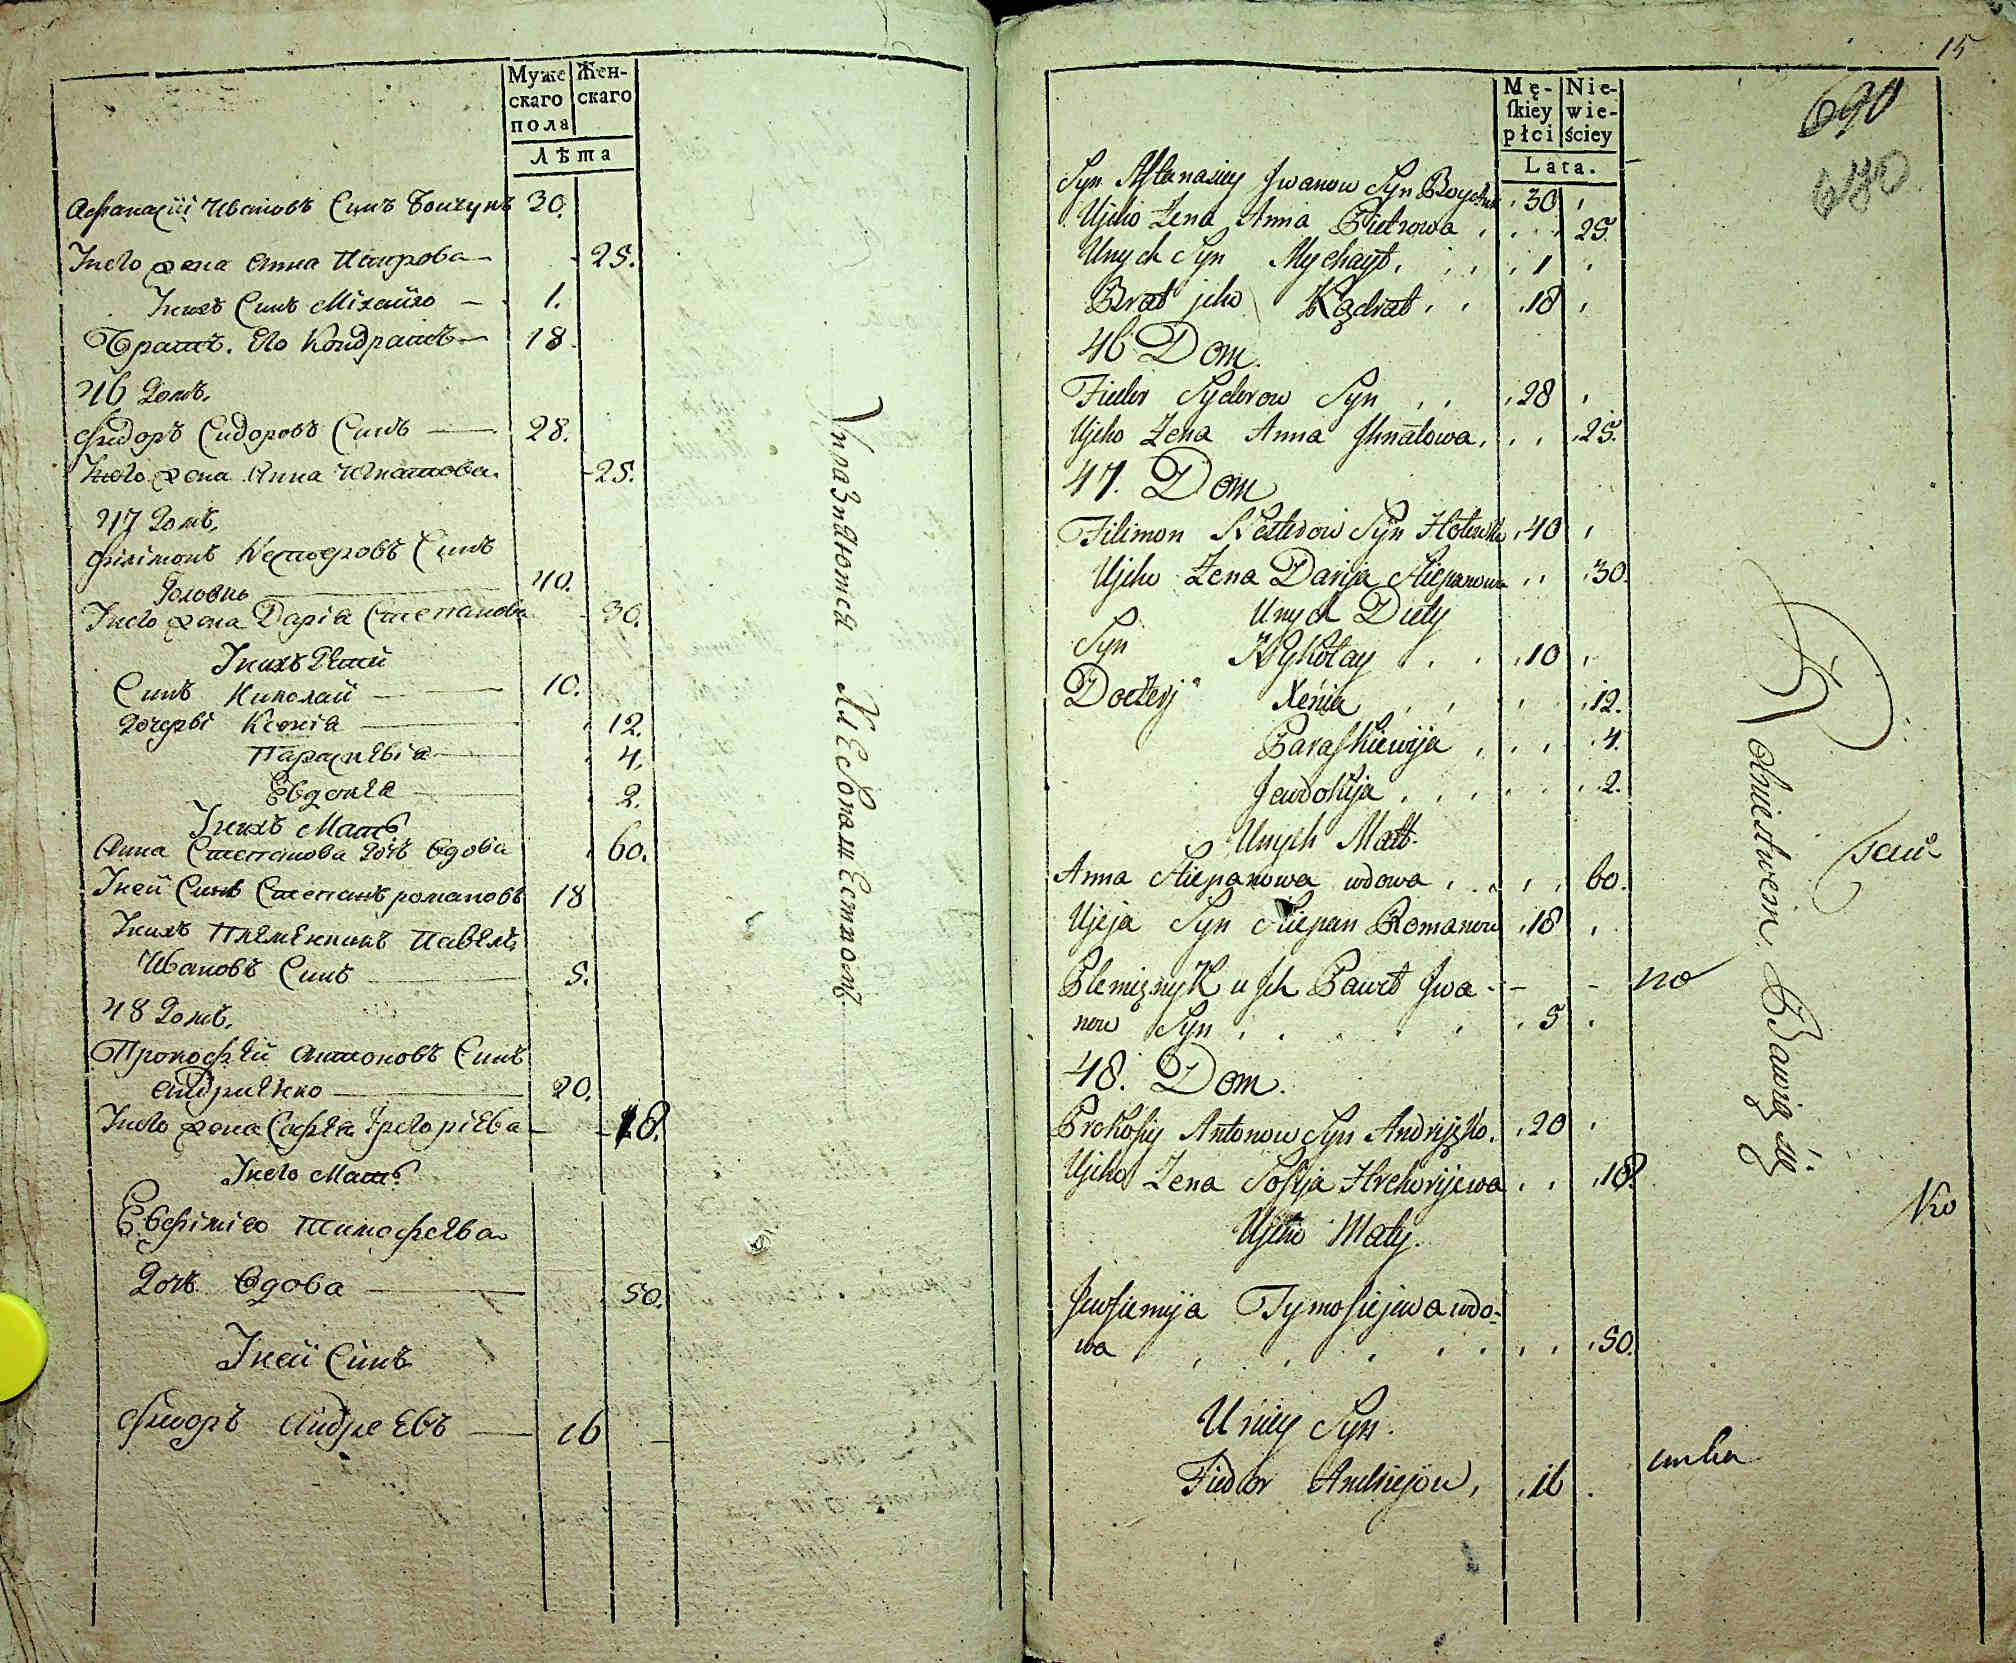 Муже Жен-
скаго скаго
пола
Лѣта
Афанасій Ивановъ Синъ Бойчукъ 30.
Унего жена Анна Петрова 25.
Унихъ Синъ Міхайло 1.
Братъ Его Кондратъ 18.
46 Домъ.
Фидоръ Сидоровъ Синъ 28.
Унего жена Анна Игнатова. 25.
47 Домъ.
Філімонъ Несторовъ Синъ
Головко 40.
Унего жена Дарія Степанова 30.
Унихъ Дети
Синъ Николай 10.
Дочерѣ Ксенія 12.
Параскевія 4.
Евдокія 2.
Унихъ Мать
Анна Степанова Дочь Вдова 60.
Уней Синъ Степанъ романовъ 18
Унихъ Племенникъ Павелъ
Ивановъ Синъ 5.
48 Домъ.
Прокофей Антоновъ Синъ
Андриенко 20.
Унего жена Софія Григоріева 18.
Унего Мать
Евфимія Тимофеева
Дочь Вдова 50.
Уней Синъ
Фидоръ Андреевъ 16
Упражняются Хлебопашествомъ
15
690
680
Mę- Nie-
ſkiey wie-
płci ściey
Lata.
Syn Aftanasiey Jwanow Syn Boyczuk 30
Ujeho Zena Anna Pietrowa 25
Unych Syn Mychaył 1
Brat jeho Kądrat 18
46 Dom.
Fiedor Syderow Syn 28
Ujeho Zena Anna Jhnatowa 25.
47. Dom
Filimon Nesterow Syn Hołowko 40
Ujeho Zena Darija Stiepanowa 30.
Unych Diety
Syn Mykołay 10
Doczery Xenia 12.
Paraskiewija 4.
Jewdokija 2.
Unych Mati.
Anna Stiepanowa wdowa 60.
Ujeja Syn Stiepan Romanow 18
Plemięnyk u Jch Paweł Jwa-
now Syn 5
48. Dom.
Prokofiy Antonow Syn Andryięko. 20
Ujeho Zena Sofija Hrehorijewa 18.
Ujeho Maty.
Jewfiemija Tymofiejewa wdo-
wa 50.
Uniey Syn.
Fiedor Andriejow, 16
Rolnictwem Bawią się
no